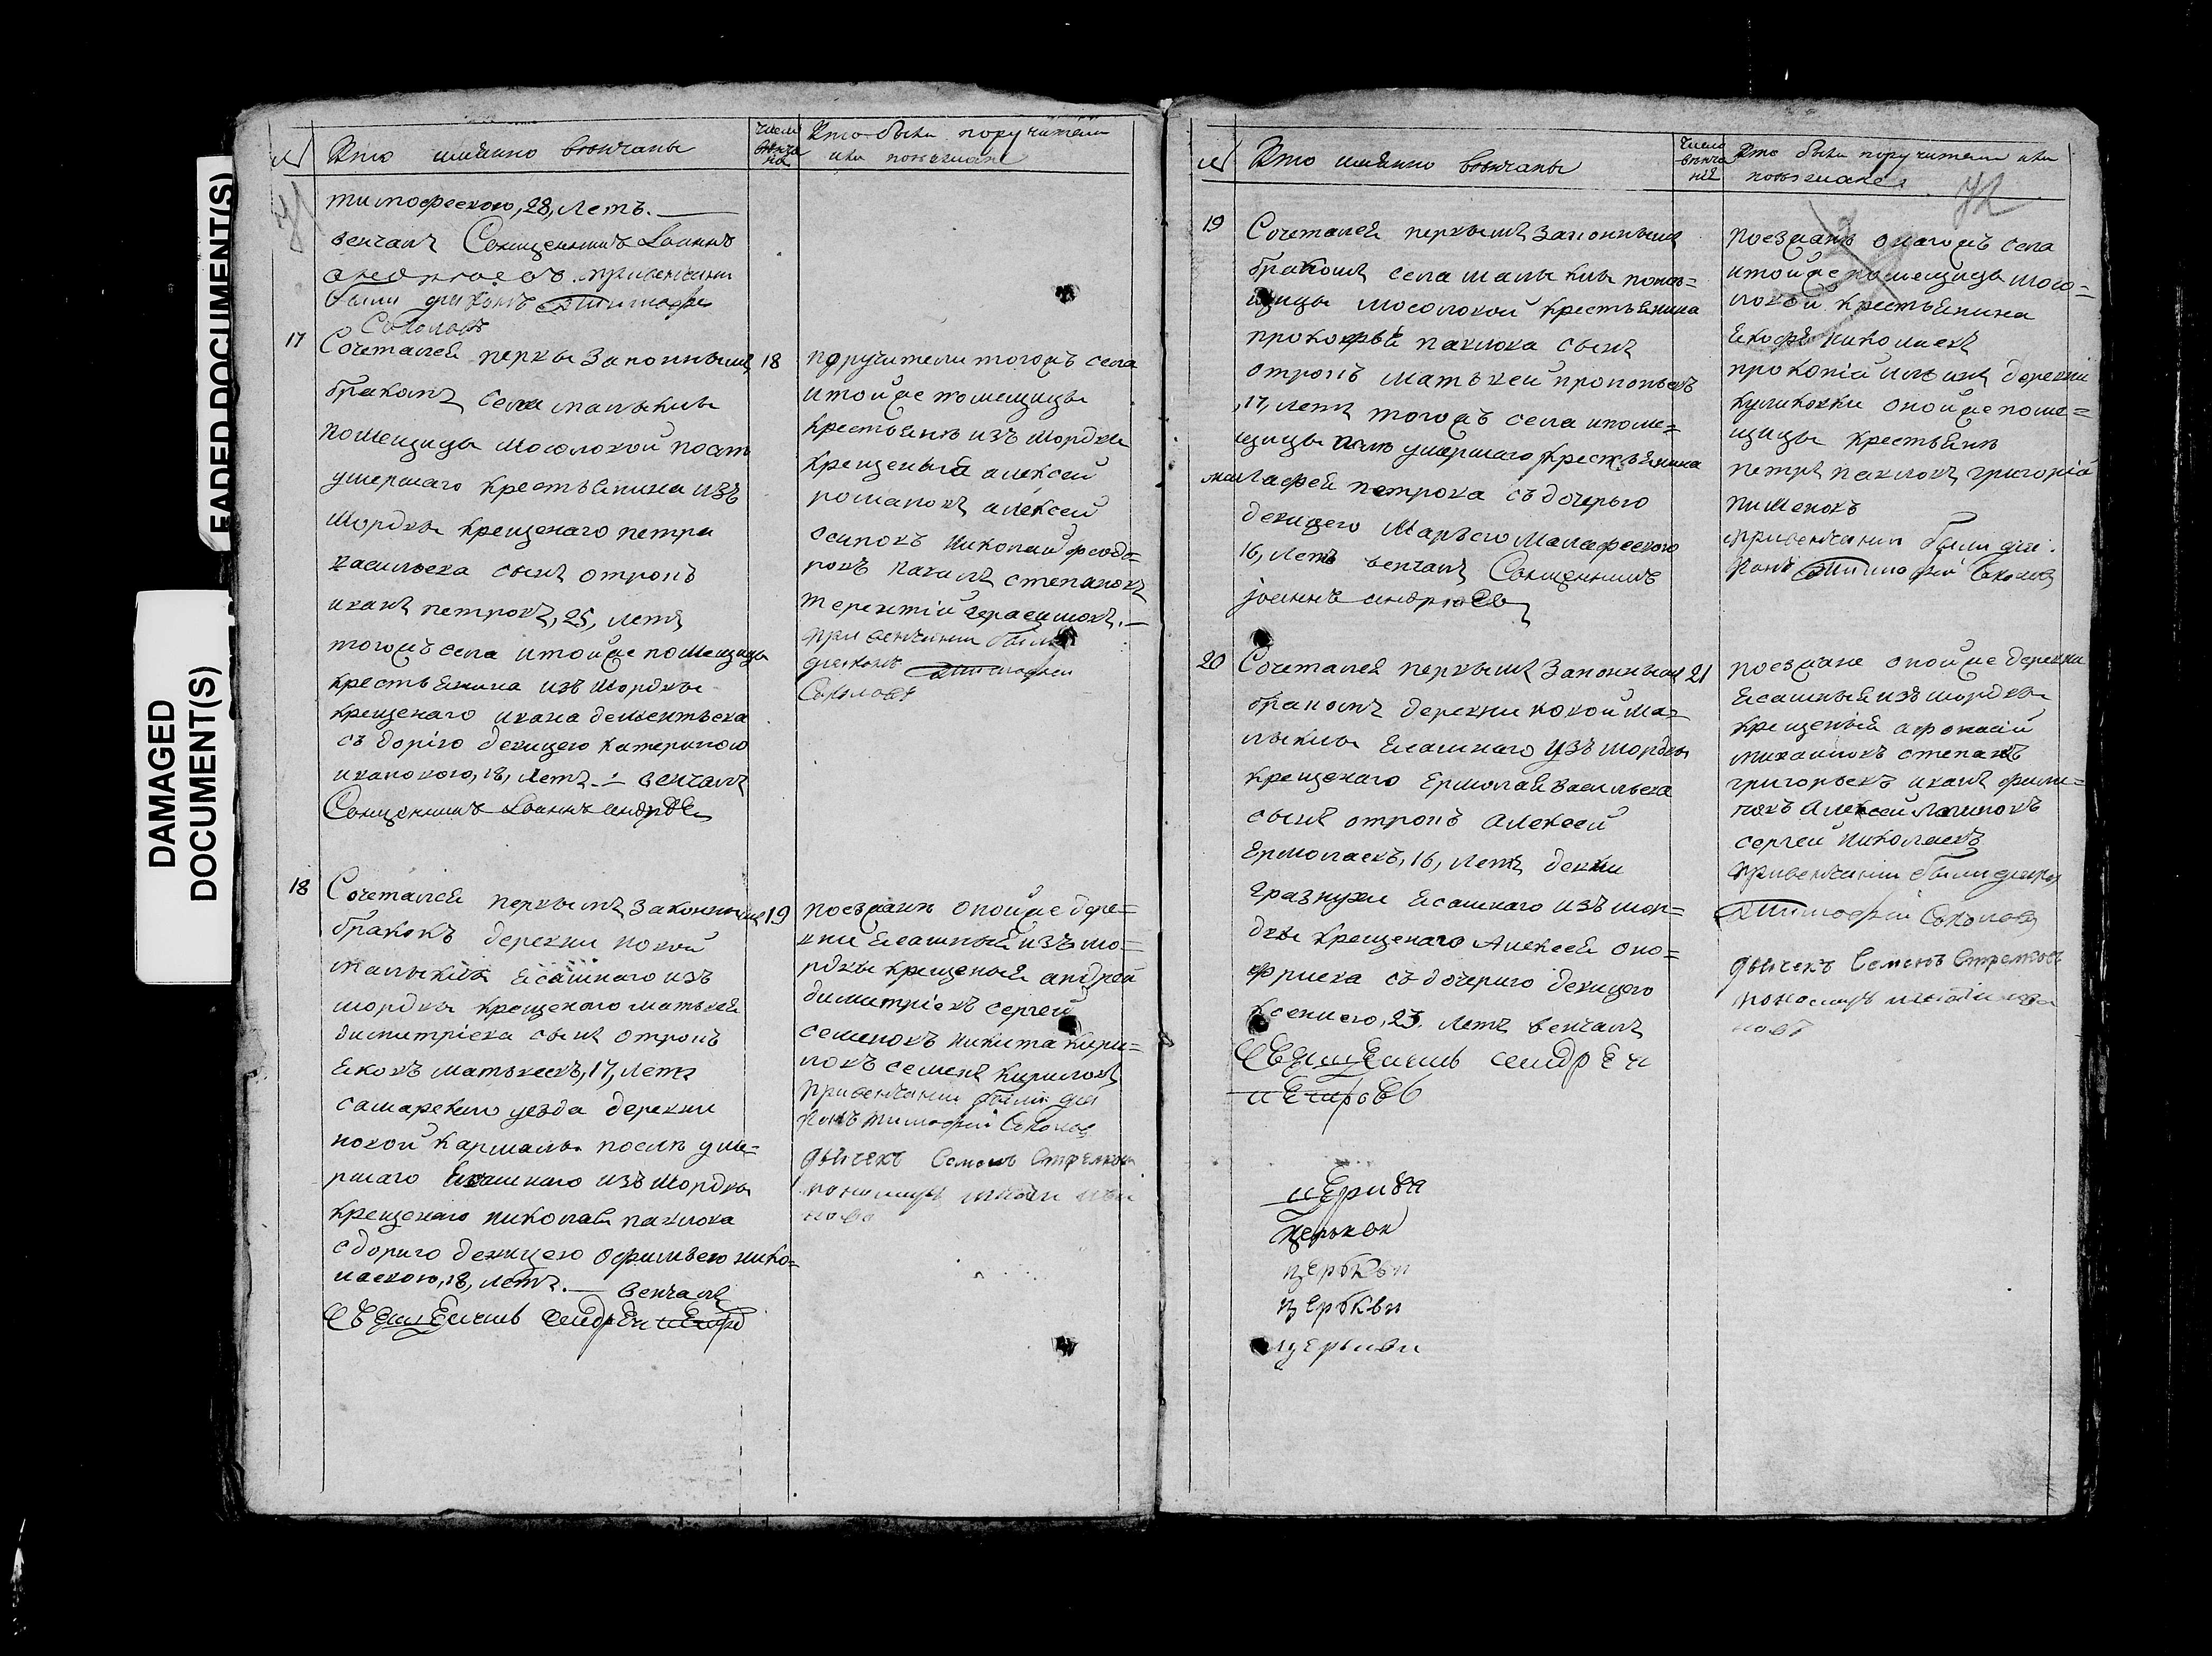 DAMAGED
DOCUMENT(S)
FADED DOCUMENT(S)
№ Кто имянно венчаны
Число венча ния
Кто были поручители
или поезжане
тимофеевою, 28, летъ.
венчалъ Священникъ Іоаннъ
андреевъ. при венчании
были диаконъ Тимофей
Соколовъ
17
Сочетался первы законнымъ
18
бракомъ села малыклы
помещицы Мосоловой после
умершаго крестьянина изъ
мордвы крещенаго петра
васильева сынъ отрокъ
иванъ петровъ, 25, летъ
тогожъ села и тойже помещицы
крестьянина изъ мордвы
крещенаго ивана дементьева
съ дочерію девицею катериною
ивановою, 18, летъ.— венчалъ
Священникъ Іоаннъ андреевъ
поручители тогожъ села
и тойже помещицы
крестьяне изъ мордвы
крещеныя алексей
романовъ алексей
осиповъ николай федо=
ровъ павелъ степановъ
терентій герасимовъ.—
при венчании были
диаконъ Тимофей
Соколовъ
18
Сочетался первымъ законнымъ
19
бракомъ деревни новой
малыклы ясашнаго изъ
мордвы крещенаго матвея
димитріева сынъ отрокъ
яковъ матвеевъ, 17, летъ
самарскаго уезда деревни
новой кармалы после уме=
ршаго ясашнаго изъ мордвы
крещенаго николая павлова
с дочерью девицею офимьею нико=
лаевою, 18, летъ.— венчалъ
Священникъ андрей петро
поезжане онойже дере=
вни ясашныя изъ мо=
рдвы крещеныя андрей
димитріевъ сергей
семеновъ никита кири=
ловъ семенъ кириловъ
при венчании были диа
конъ тимофей Соколов
дьячекъ Семенъ Стрелков
пономарь
№ Кто имянно венчаны
Число венча ния
Кто были поручители или
поезжане
42
19
Сочетался первымъ законнымъ
бракомъ села малыклы поме=
щицы мосоловой крестьянина
прокофья павлова сынъ
отрокъ матвей прокопьевъ
,17, летъ тогожъ села и поме=
щицы после умершаго крестьянина
малафея петрова съ дочерью
девицею Марьею Малафеевою
16, летъ венчалъ Священникъ
іоаннъ андреевъ
поезжане онагожъ села
и тойже помещицы мосо=
ловой крестьянина
яковъ николаевъ
прокопій ильинъ деревни
куликовки онойже поме=
щицы крестьяне
петръ павловъ григорій
пименовъ
при венчании были диа
конъ Тимофей Соколовъ
20
Сочетался первымъ законнымъ
21
бракомъ деревни новой ма=
лыклы ясашнаго изъ мордвы
крещенаго ермолая васильева
сынъ отрокъ алексей
ермолаевъ, 16, летъ девни
грязнухи ясашнаго изъ мор=
двы крещенаго Алексея оно=
фриева съ дочерью девицею
ксениею, 23. летъ венчалъ
Священникъ андрей
петровъ
поезжане онойже деревни
ясашныя изъ мордвы
крещеныя афонасій
михайловъ степанъ
григорьевъ иванъ фили=
повъ Алексей логиновъ
сергей николаевъ
при венчании были диакон
Тимофей Соколовъ
дьячекъ Семенъ Стрелковъ
пономарь
церква
церкви
церькви
церькви
церькви